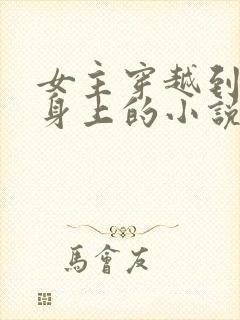 女主穿越到
身上的小説
馬會友